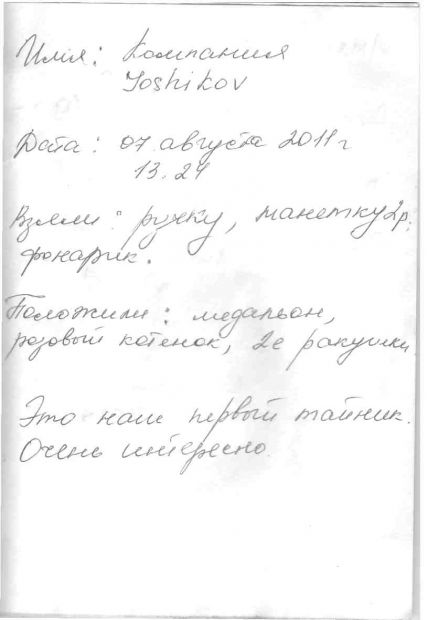 Имя: Компания
Yoshikov
Дата: 07 августа 2011 г
13.24
Взяли: ручку, манетку 2р,
фонарик.
Положили: медальон,
розовый котенок, 2е ракушки
Это наш первый тайник.
Очень интересно.